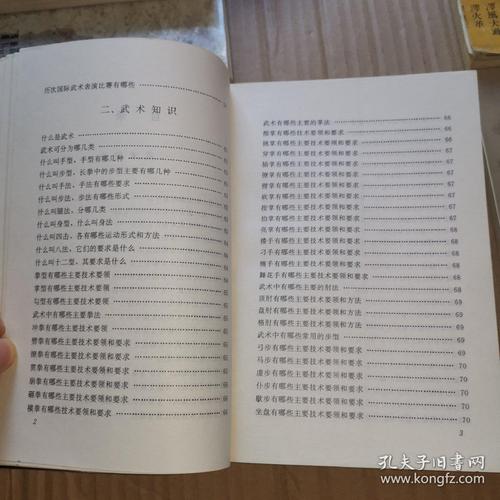 历次国际武术表演比赛有哪些
二、武术知识
什么是武术
武术可分为哪几类
什么叫手型，手型有哪几种
什么叫步型，长拳中的步型主要有哪几种
什么叫手法，手法有哪些要求
什么叫步法，步法有哪些形式
什么叫腿法，分哪几类
什么叫身型，什么叫身法
什么叫四击，各有哪些运动形式和方法
什么叫八法，它们的要求是什么
什么叫十二型，其要求是什么
拳型有哪些主要技术要领
掌型有哪些主要技术要领
勾型有哪些主要技术要领
武术中有哪些主要拳法
冲拳有哪些主要技术要领
劈拳有哪些主要技术要领和要求
撩拳有哪些主要技术要领和要求
贯拳有哪些主要技术要领和要求
崩拳有哪些主要技术要领和要求
砸拳有哪些主要技术要领和要求
横拳有哪些技术要领和要求
2
武术有哪些主要的掌法 66
推掌有哪些技术要领和要求 66
挑掌有哪些主要技术要领和要求 66
穿掌有哪些主要技术要领和要求 66
掌有哪些主要技术要领和要求 67
掌有哪些主要技术要领和要求 67
掌有哪些主要技术要领和要求 67
砍掌有哪些主要技术要领和要求 67
按掌有哪些主要技术要领和要求 67
拍掌有哪些主要技术要领和要求 67
亮掌有哪些主要技术要领和要求 68
搂手有哪些主要技术要领和要求 68
刁手有哪些主要技术要领和要求 68
手有哪些主要技术要领和要求 68
舞花手有哪些主要技术要领和要求 68
武术中有哪些主要的肘法 69
顶肘有哪些主要技术要领和方法 69
盘肘有哪些主要技术要领和方法 69
格肘有哪些主要技术要领和方法 69
武术中有哪些常用的步型 69
弓步有哪些主要技术要领和要求
马步有哪些主要技术要领和要求 70
虚步有哪些主要技术要领和要求 70
仆步有哪些主要技术要领和要求 70
歇步有哪些主要技术要领和要求 70
坐盘有哪些主要技术要领和要求 70
3
孔夫子旧书网
kongfz.com